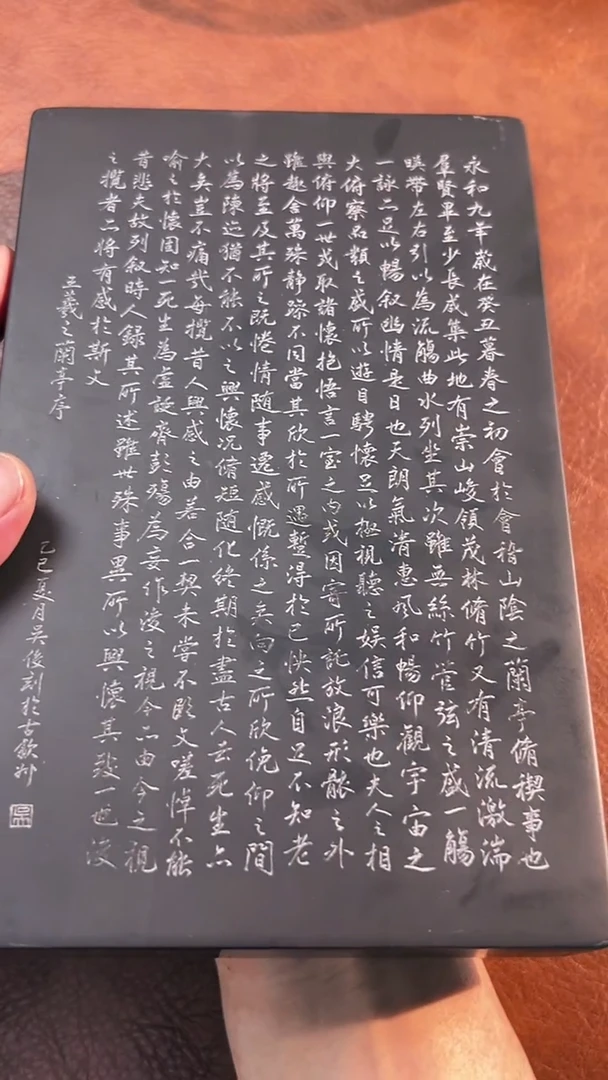 永和九年歲在癸丑暮春之初會於會稽山陰之蘭亭脩禊事也
羣賢畢至少長咸集此地有崇山峻領茂林脩竹又有清流激湍
暎帶左右引以為流觴曲水列坐其次雖無絲竹管弦之盛一觴
一詠亦足以暢叙幽情是日也天朗氣清惠風和暢仰觀宇宙之
大俯察品類之盛所以遊目騁懷足以極視聽之娛信可樂也夫人之相
與俯仰一世或取諸懷抱悟言一室之內或因寄所託放浪形骸之外
雖趣舍萬殊静躁不同當其欣於所遇蹔得於己怏然自足不知老
之將至及其所之既惓情随事遷感慨係之矣向之所欣俛仰之間
以為陳迹猶不能不以之興懷况脩短随化終期於盡古人云死生亦
大矣豈不痛哉每攬昔人興感之由若合一契未嘗不臨文嗟悼不能
喻之於懷固知一死生為虛誕齊彭殤為妄作後之視今亦由今之視
昔悲夫故列叙時人録其所述雖世殊事異所以興懷其致一也後
之攬者亦將有感於斯文
王羲之蘭亭序
乙巳夏月吴俊刻於古歙州